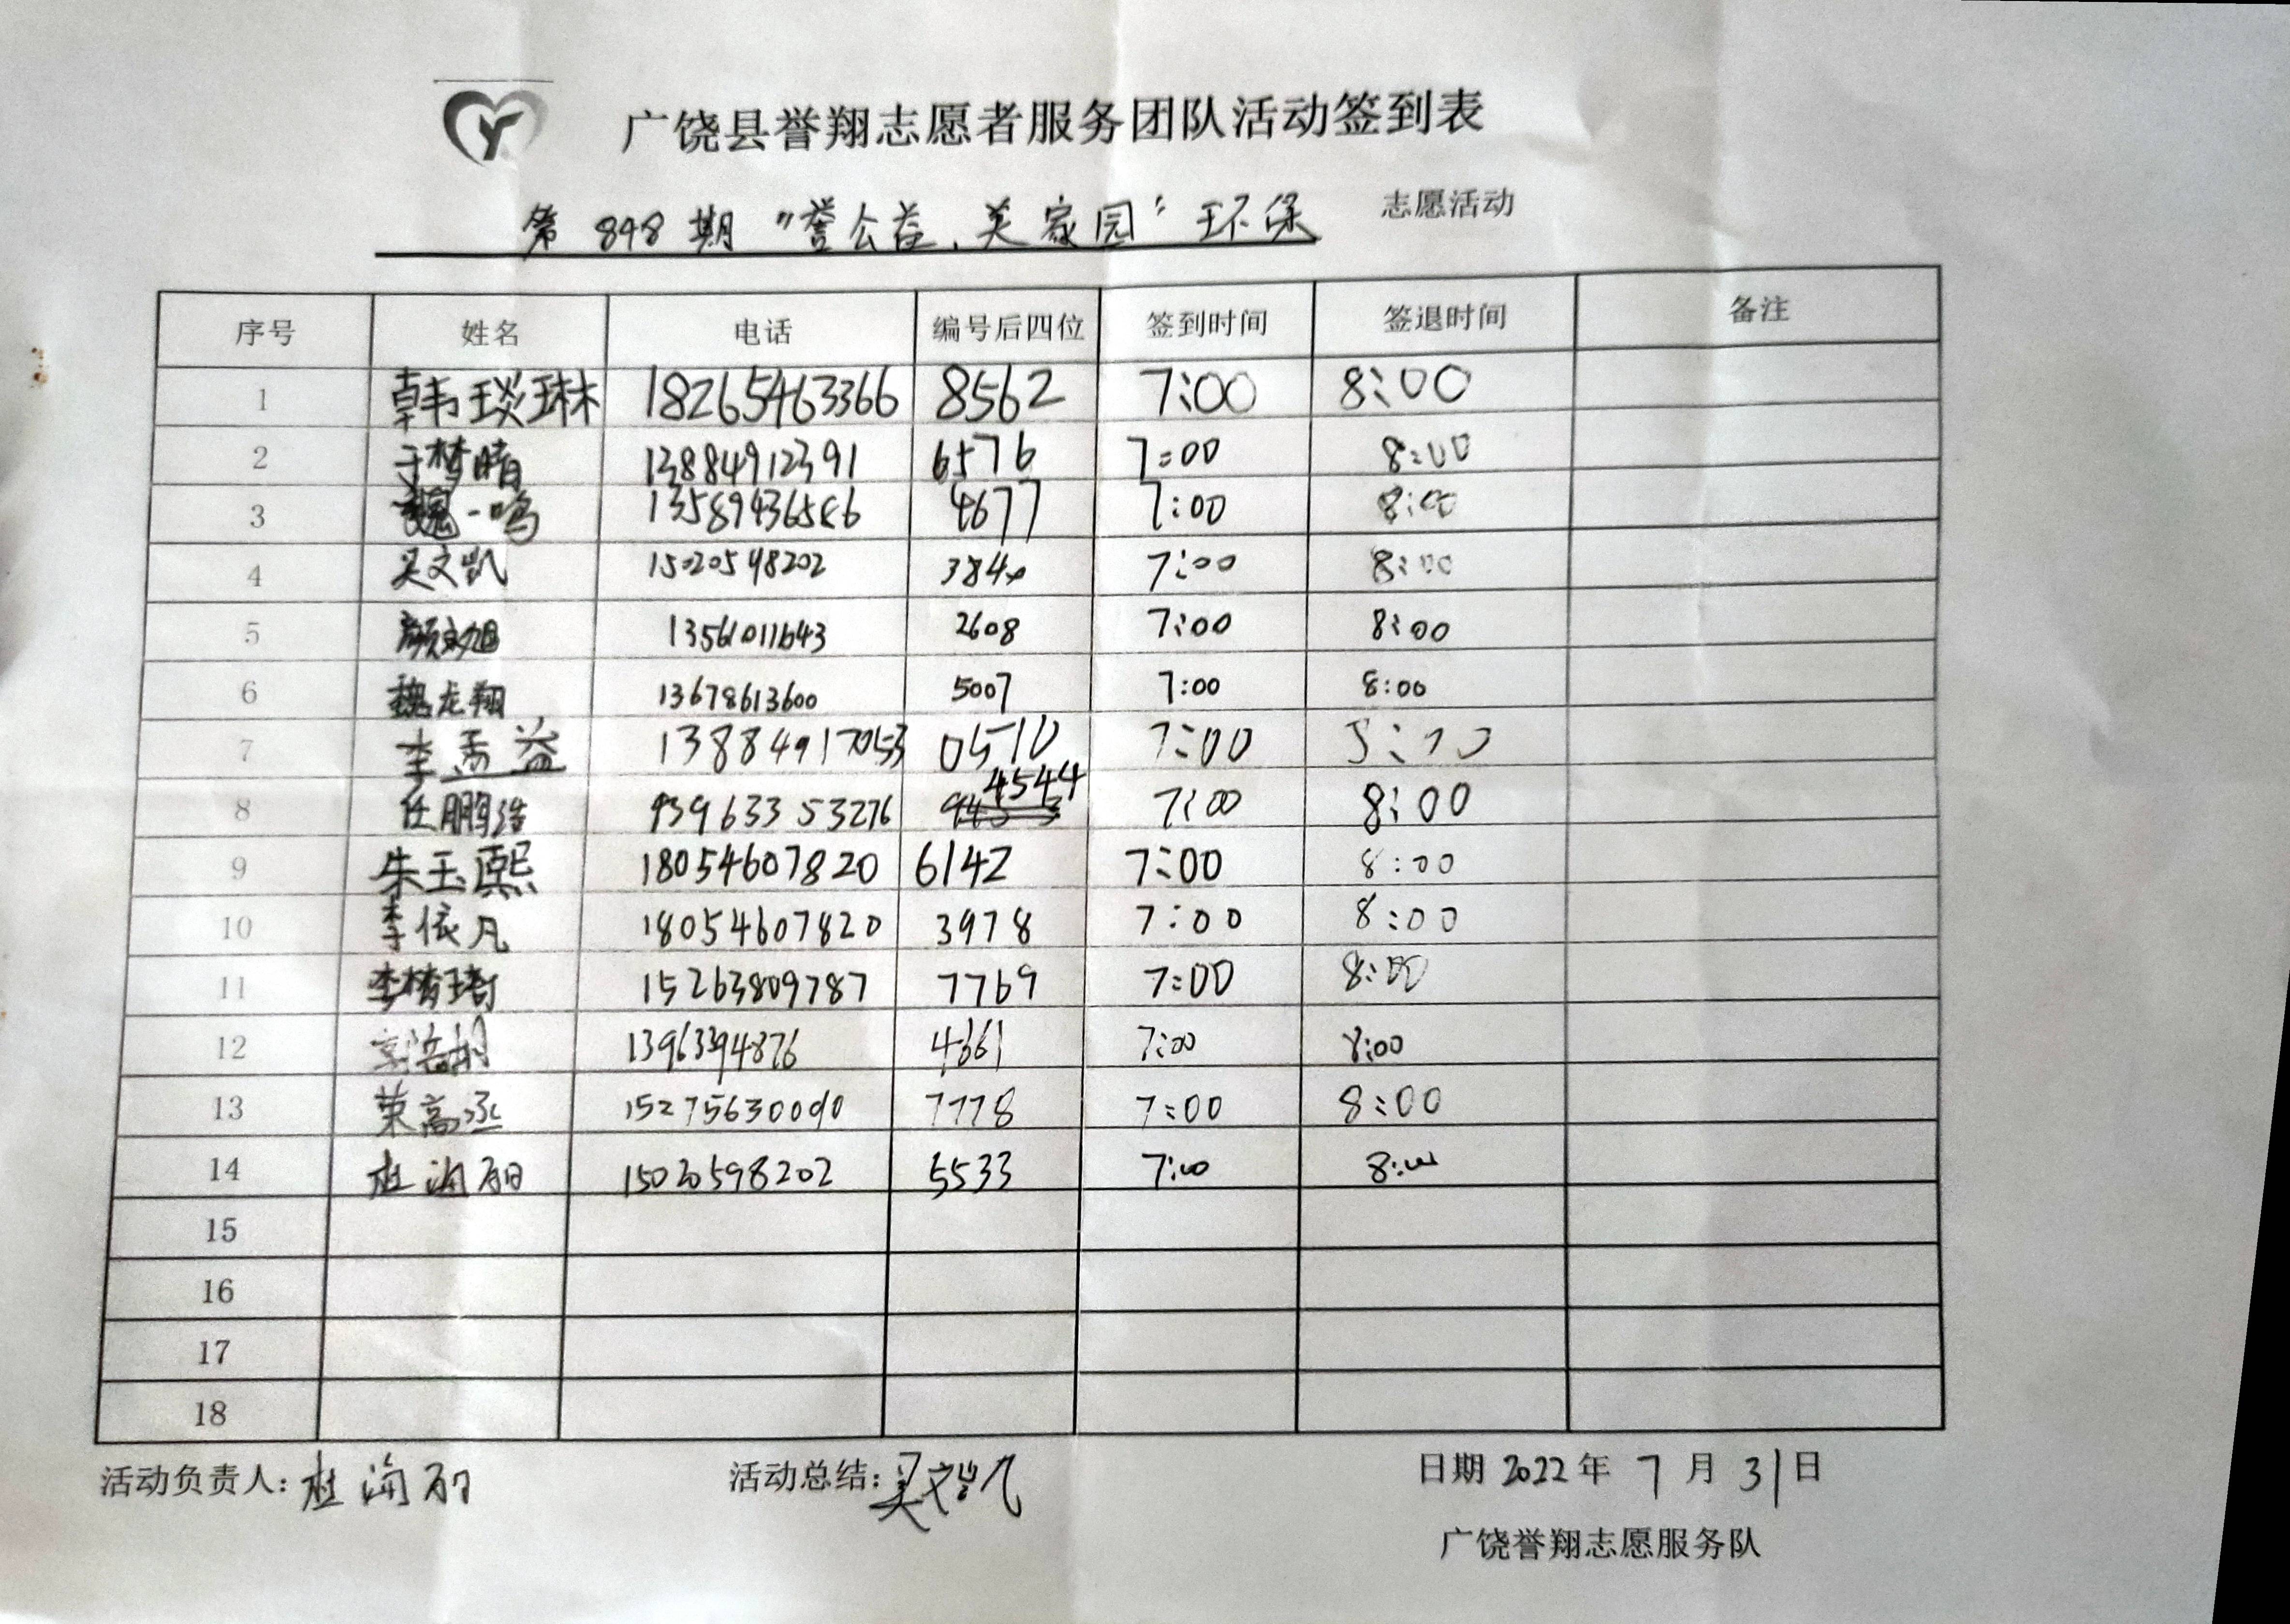 广饶县誉翔志愿者服务团队活动签到表
第 898 期 "誉公益、美家园" 环保 志愿活动
序号 姓名 电话 编号后四位 签到时间 签退时间 备注
1 韩琰琳 18265463366 8562 7:00 8:00
2 于梦晴 13884912391 6576 7:00 8:00
3 魏一鸣 4677 7:00 8:00
4 吴文凯 15020598202 7:00 8:00
5 颜文旭 13561011643 2608 7:00 8:00
6 魏龙翔 13678613600 5007 7:00 8:00
7 李孟益 13884917053 0510 7:00
8 任鹏浩 4544 7:00 8:00
9 朱玉熙 18054607820 6142 7:00 8:00
10 李依凡 18054607820 3978 7:00 8:00
11 李梦琦 15263809787 7769 7:00 8:00
12 13963394876 4661 7:00 8:00
13 荣高丞 15275630090 7778 7:00 8:00
14 杜海丽 15020598202 5533 7:00 8:00
15
16
17
18
活动负责人：杜海丽 活动总结：吴文凯 日期 2022 年 7 月 31 日
广饶誉翔志愿服务队